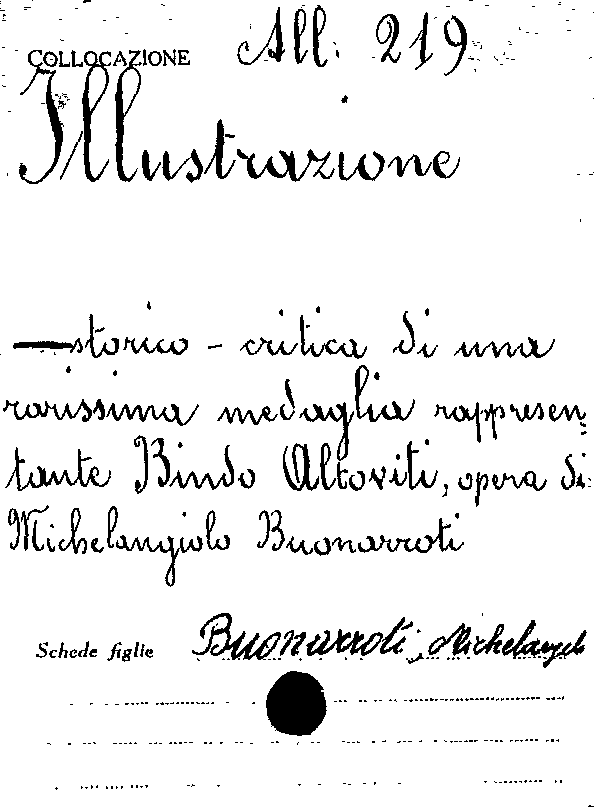 COLLOCAZIONE All. 219
Illustrazione
—storico - critica di una
rarissima medaglia rappresen=
tante Bindo Altoviti, opera di
Michelangiolo Buonarroti
Schede figlie Buonarroti, Michelangelo